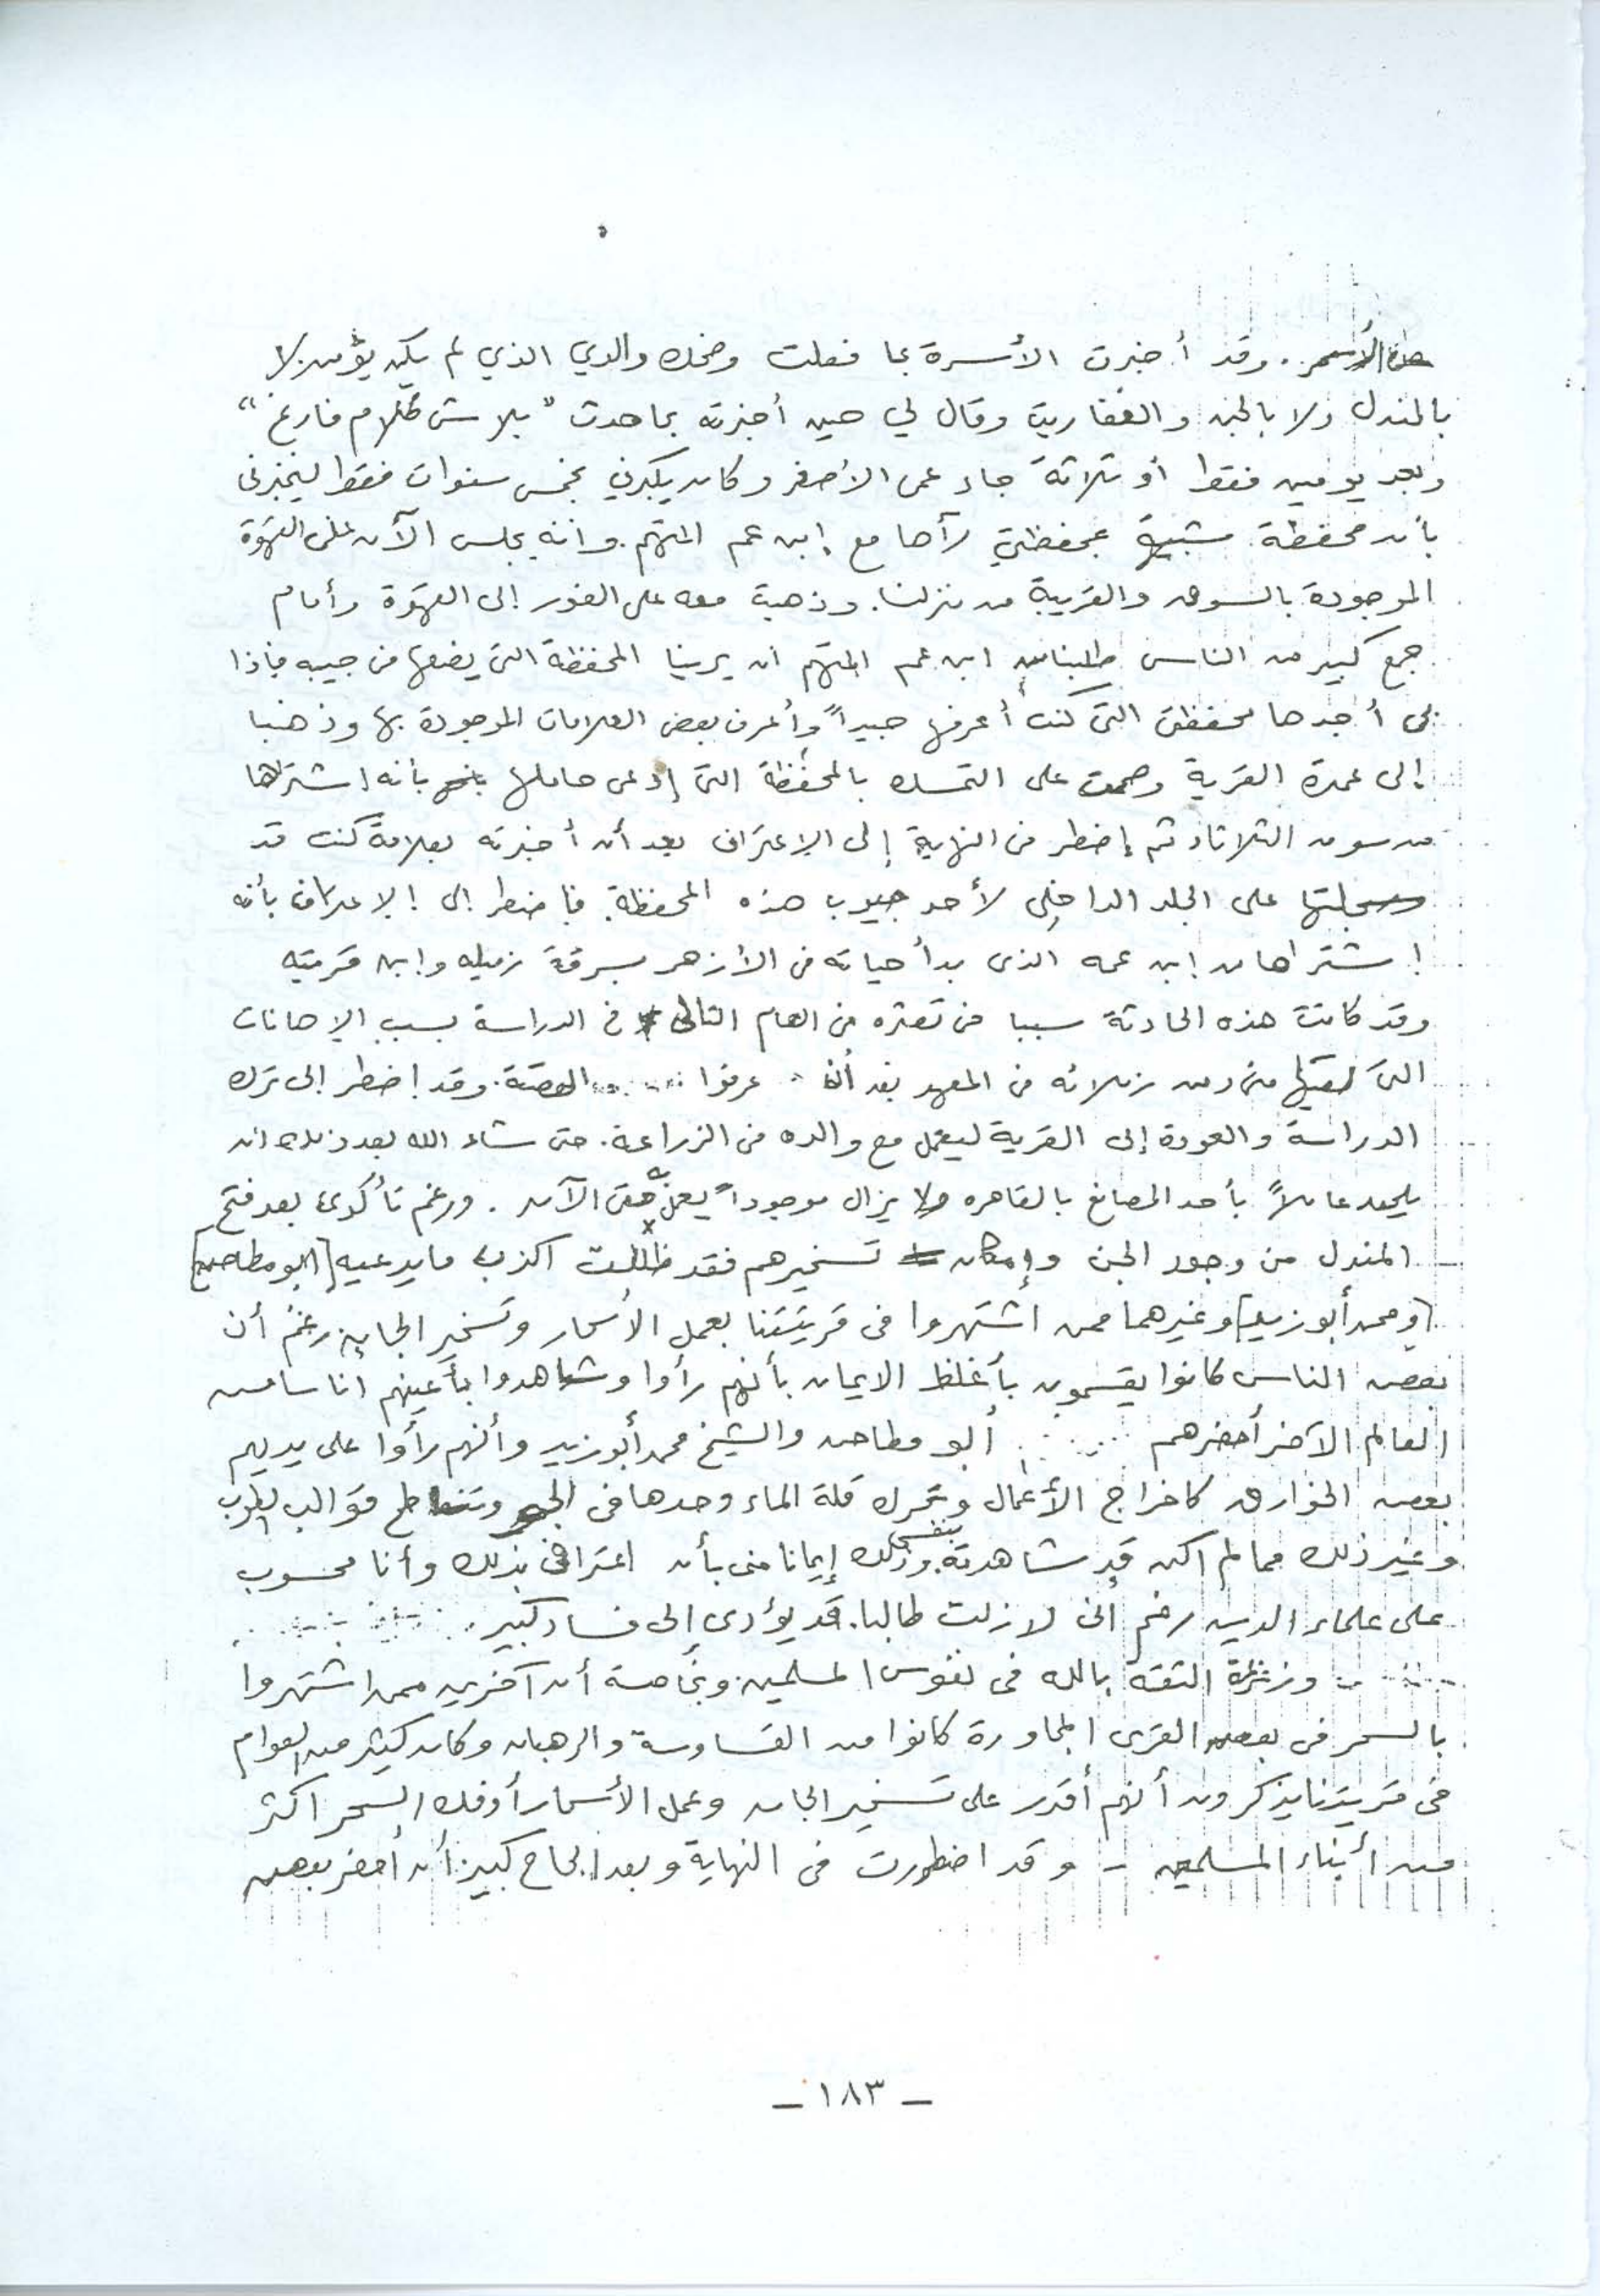 الأسمر. وقد أخبرت الأسرة بما فعلت وضحك والدي الذي لم يكن يؤمن لا
بالمندل ولا بالجن والعفاريت وقال لي حين أخبرته بما حدث "بلاش كلام فارغ"
وبعد يومين فقط أو ثلاثة جاء عمى الأصغر وكان يكبرني بخمس سنوات فقط ليخبرنى
بأن محفظة شبيهة بمحفظتي رآها مع إبن عم المتهم. وانه يجلس الآن على القهوة
الموجودة بالسوق والقريبة من منزلنا. وذهبت معه على الفور إلى القهوة وأمام
جمع كبير من الناس طلبنا من ابن عم المتهم ان يرينا المحفظة التى يضعها فى جيبه فإذا
بى أجدها محفظتى التى كنت أعرفها جيداً وأعرف بعض العلامات الموجودة بها وذهبنا
إلى عمدة القرية وصممت على التمسك بالمحفظة التى إدعى حاملها بأنه اشتراها
من سوق الثلاثاء ثم إضطر فى النهاية إلى الإعتراف بعد أن أخبرته بعلامة كنت قد
سجلتها على الجلد الداخلى لأحد جيوب هذه المحفظة. فاضطر إلى الإعتراف بأنه
إشتراها من إبن عمه الذى بدأ حياته فى الأزهر بسرقة زميله وابن قريته
وقد كانت هذه الحادثة سببا فى تعثره فى العام التالى فى الدراسة بسبب الإهانات
التى لقيها من زملائه فى المعهد بعد أن عرفوا القصة. وقد إضطر إلى ترك
الدراسة والعودة إلى القرية ليعمل مع والده فى الزراعة. حتى شاء الله بعد ذلك ان
يلتحق عاملاً بأحد المصانع بالقاهره ولا يزال موجوداً يعمل حتى الآن. ورغم تأكدى بعد فتح
المندل من وجود الجن وإمكان تسخيرهم فقد ظللت اكذب ما يدعيه [ابو مطاحن]
[ومحمد أبو زيد] وغيرهما ممن اشتهروا فى قريتنا بعمل الأسحار وتسخير الجان. رغم أن
بعض الناس كانوا يقسمون بأغلظ الايمان بأنهم رأوا وشاهدوا بأعينهم اناسا من
العالم الآخر أحضرهم أبو مطاحن والشيخ محمد أبو زيد وأنهم رأوا على يديهم
بعض الخوارق كاخراج الأعمال وتحرك قلة الماء وحدها فى الجو وتناطح قوالب الطوب
وغير ذلك مما لم اكن قد شاهدته بنفسى وذلك إيمانا منى بأن اعترافى بذلك وأنا محسوب
على علماء الدين رغم انى لازلت طالبا. قد يؤدى إلى فساد كبير.
وزعزعة الثقة بالله فى نفوس المسلمين وبخاصة أن آخرين ممن اشتهروا
بالسحر فى بعض القرى المجاورة كانوا من القساوسة والرهبان وكان كثير من العوام
فى قريتنا يذكرون أنهم أقدر على تسخير الجان وعمل الأسحار أو فك السحر اكثر
من أبناء المسلمين - وقد اضطررت فى النهاية وبعد إلحاح كبير أن أحضر بعض
- ١٨٣ -